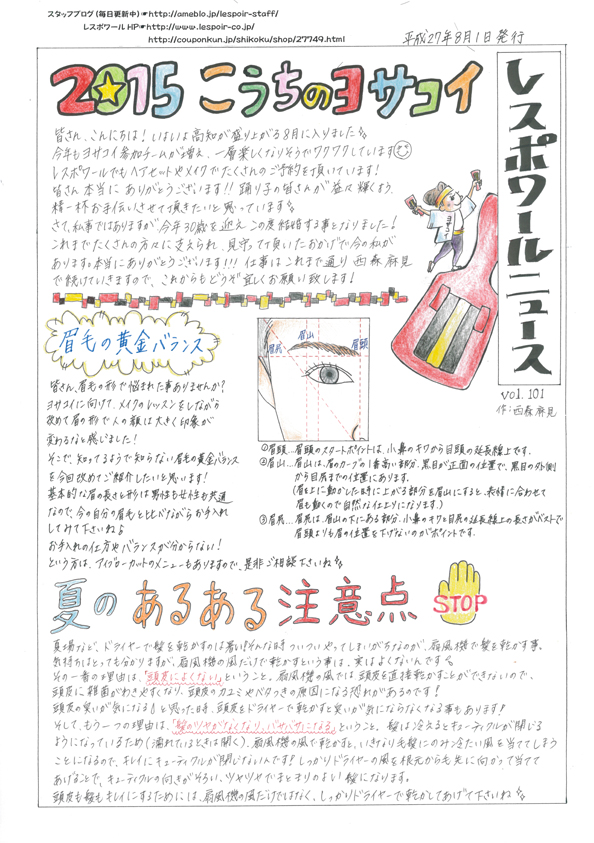 スタッフブログ(毎日更新中)☛http://ameblo.jp/lespoir-staff/
レスポワールHP☛http://www.lespoir-co.jp/
http://couponkun.jp/shikoku/shop/27749.html
平成27年8月1日発行
2015 こうちのヨサコイ
レスポワールニュース
vol. 101
作:西森麻見
皆さん、こんにちは！いよいよ高知が盛り上がる8月に入りました
今年もヨサコイ参加チームが増え、一層楽しくなりそうでワクワクしています
レスポワールでもヘアセットやメイクでたくさんのご予約を頂いています！
皆さん本当にありがとうございます!!踊り子の皆さんが益々輝くよう、
精一杯お手伝いさせて頂きたいと思っています
さて、私事ではありますが、今年30歳を迎え、この度結婚する事となりました！
これまでたくさんの方々に支えられ、見守って頂いたおかげで今の私が
あります。本当にありがとうございます!!!仕事はこれまで通り西森麻見
で続けていきますので、これからもどうぞ宜しくお願い致します！
ヨサコイ
眉毛の黄金バランス
皆さん、眉毛の形で悩まれた事ありませんか？
ヨサコイに向けて、メイクのレッスンをしながら
改めて眉の形で人の顔は大きく印象が
変わるなと感じました！
そこで、知ってるようで知らない眉毛の黄金バランス
を今回改めてご紹介したいと思います！
基本的な眉の長さと形は男性も女性も共通
なので、今の自分の眉毛と比べながらお手入れ
してみて下さいね♪
お手入れの仕方やバランスが分からない！
という方は、アイブローカットのメニューもありますので、是非ご相談下さいね
眉尻
眉山
眉頭
①眉頭…眉頭のスタートポイントは、小鼻のキワから目頭の延長線上です。
②眉山…眉山は、眉のカーブの1番高い部分。黒目が正面の位置で、黒目の外側
から目尻までの位置にあります。
(眉を上に動かした時に上がる部分を眉山にすると、表情に合わせて
眉も動くので自然な仕上りになります。)
③眉尻…眉尻は、眉山の下にある部分。小鼻のキワと目尻の延長線上の長さがベストで
眉頭よりも眉の位置を下げないのがポイントです。
夏のあるある注意点
STOP
真場など、ドライヤーで髪を乾かすのは暑い!そんな時ついついやってしまいがちなのが、扇風機で髪を乾かす事。
気持ちはとっても分かりますが、扇風機の風だけで乾かすという事は、実はよくないんです
その一番の理由は、「頭皮によくない」ということ。扇風機の風では頭皮を直接乾かすことができないので、
頭皮に雑菌がわきやすくなり、頭皮のカユミやベタつきの原因になる恐れがあるのです！
頭皮の臭いが気になる』と思った時、頭皮をドライヤーで乾かすと臭いが気にならなくなる事もあります！
そして、もう一つの理由は、「髪のツヤがなくなり、パサパサになる」ということ。髪は冷えるとキューティクルが閉じる
ようになっているため(濡れているときは開く)、扇風機の風で乾かすと、いきなり毛髪にのみ冷たい風を当ててしまう
ことになるので、キレイにキューティクルが閉じないんです！しっかりドライヤーの風を根元から毛先に向かって当てて
あげることで、キューティクルの向きがそろい、ツヤツヤでまとまりのよい髪になります。
頭皮も髪もキレイにするためには、扇風機の風だけではなく、しっかりドライヤーで乾かしてあげて下さいね